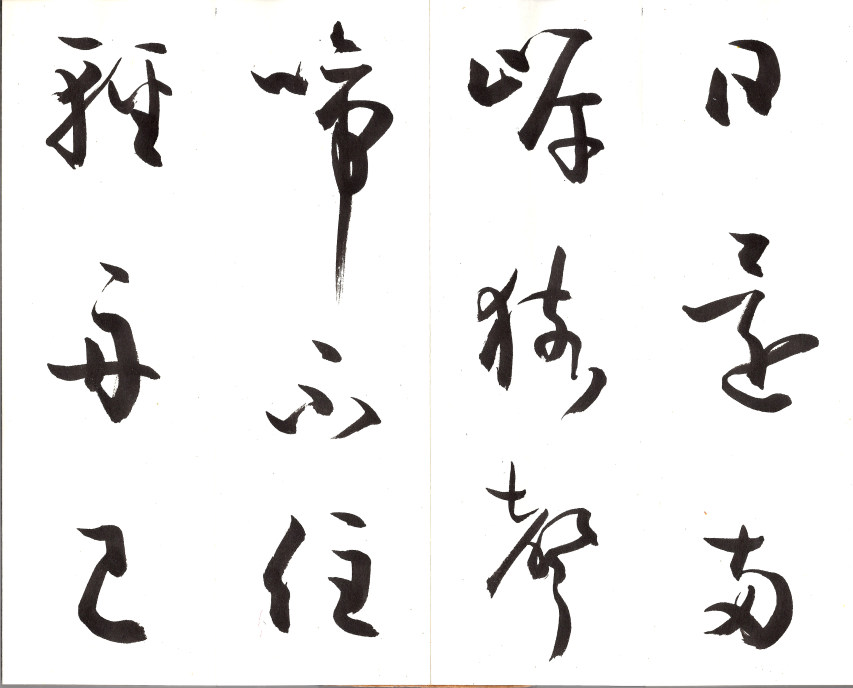 日還兩
岸猿聲
啼不住
輕舟已